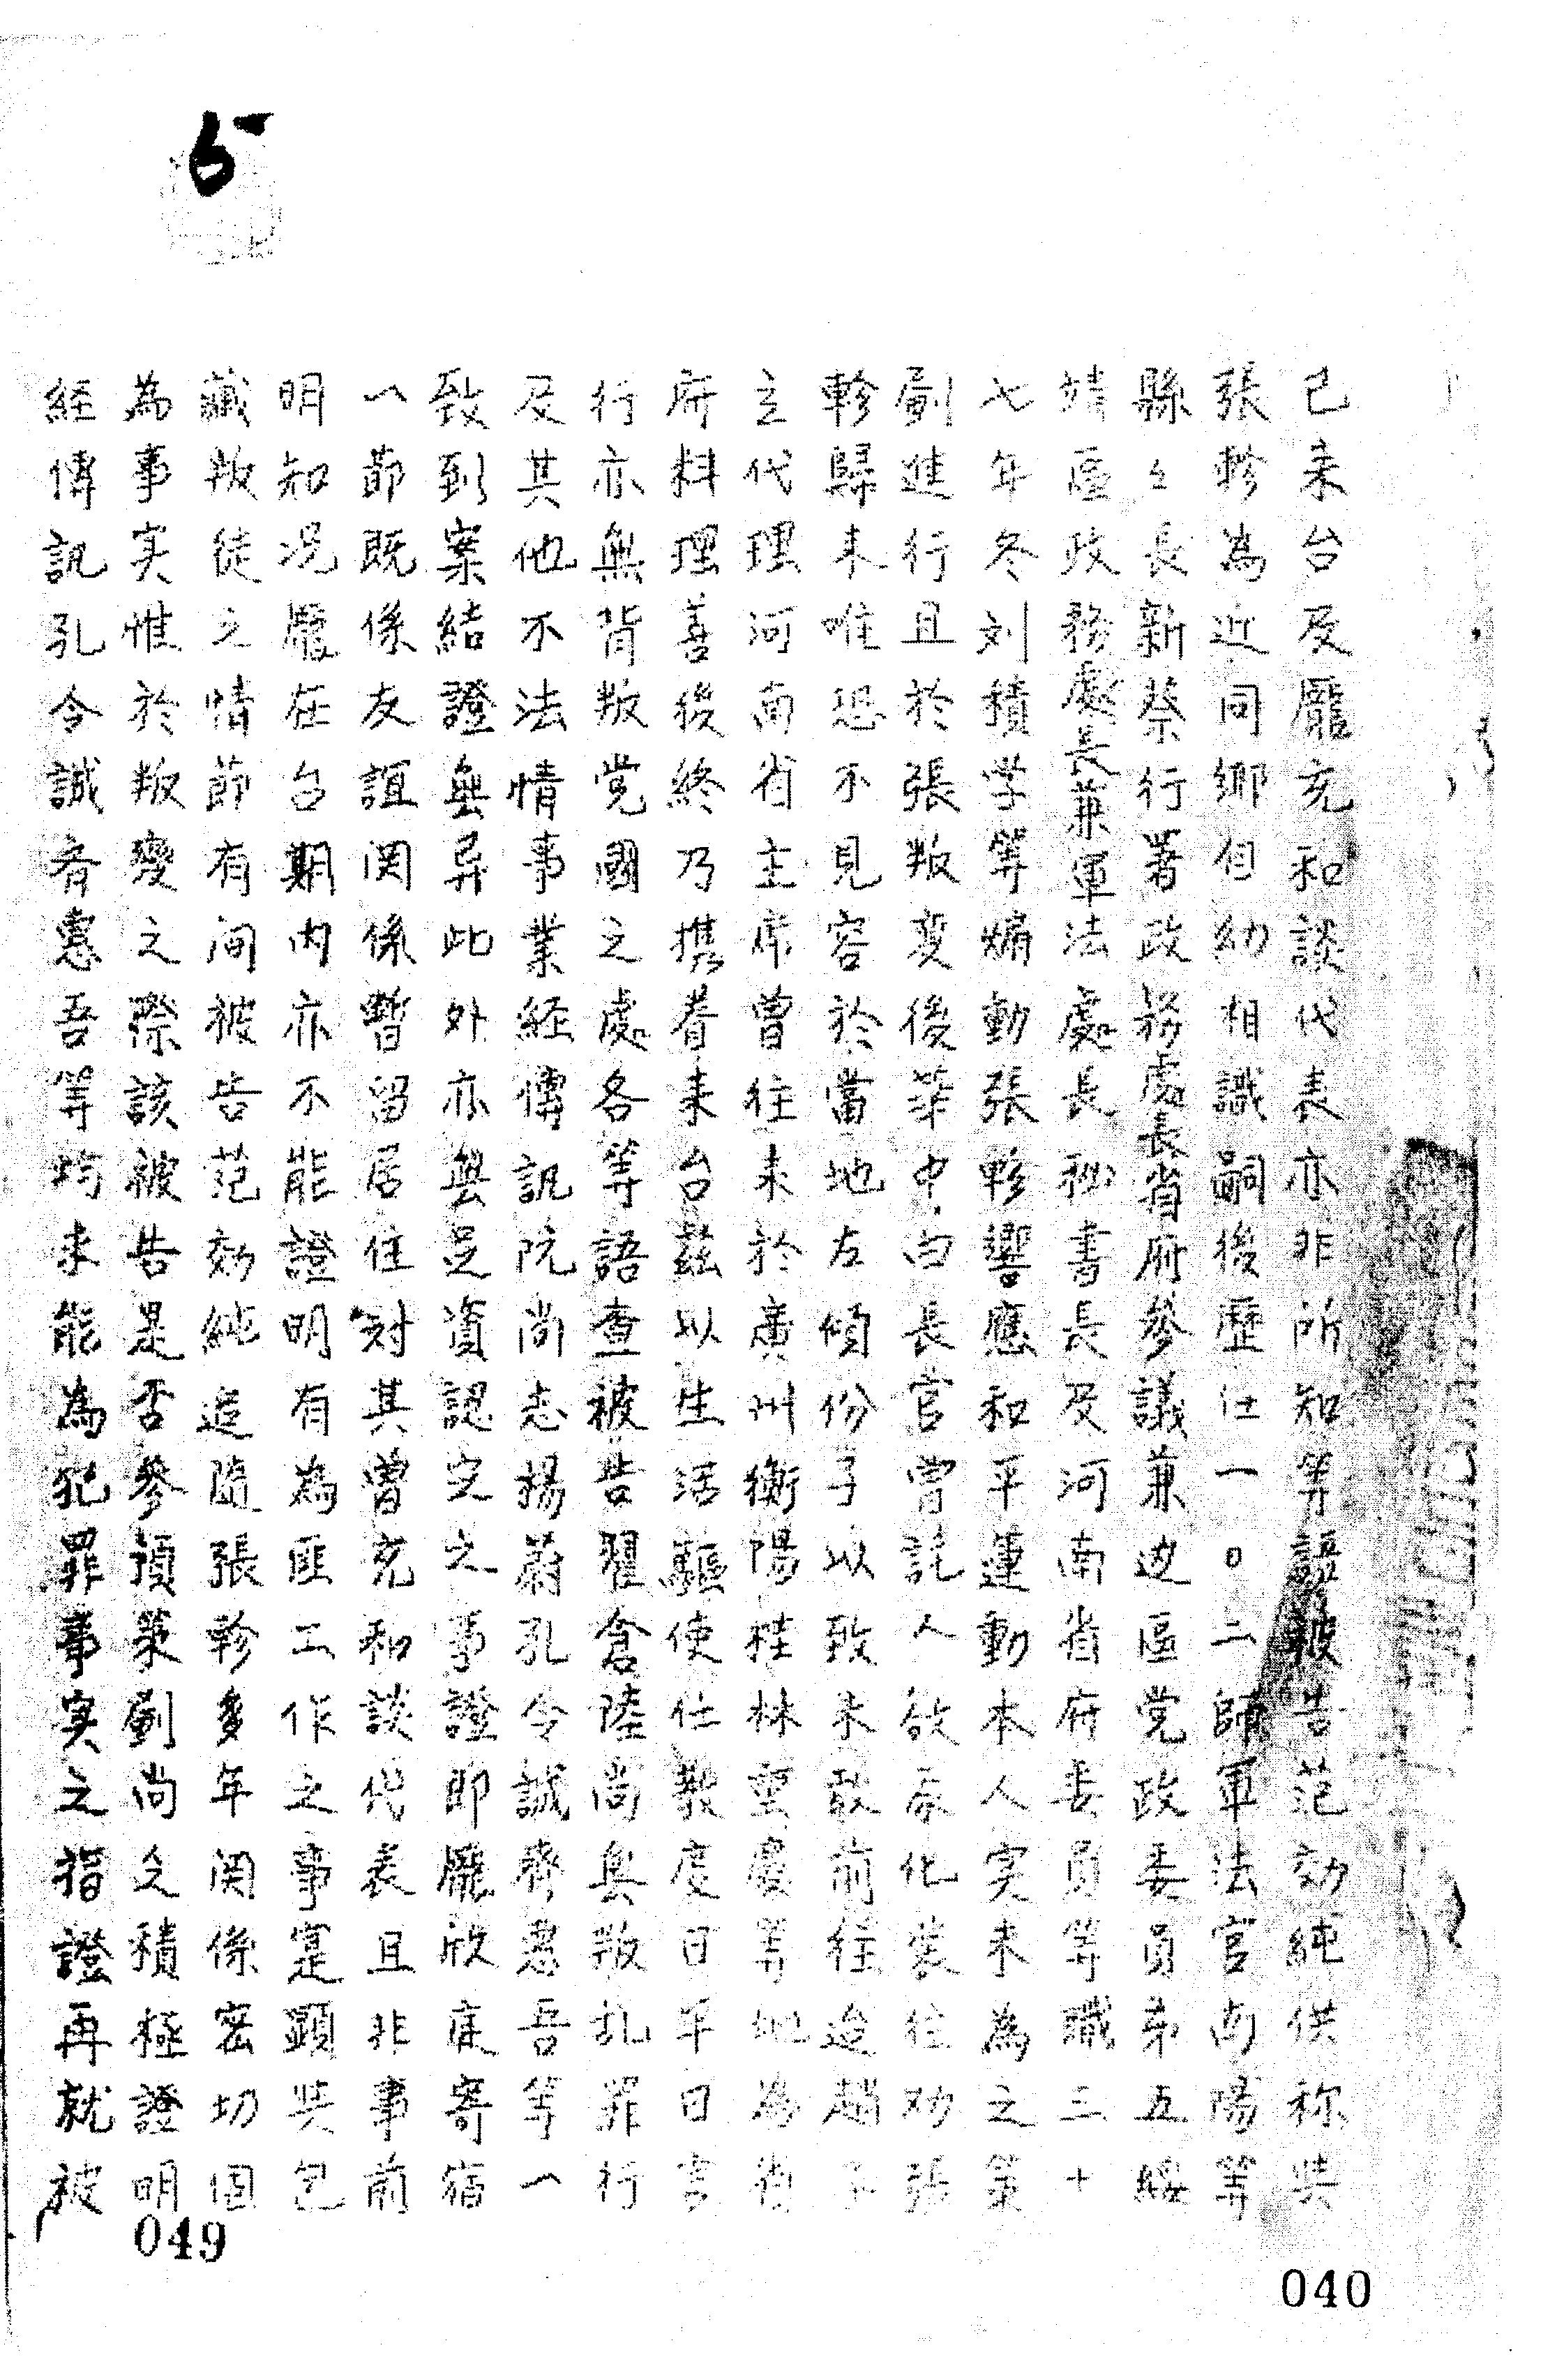 5
已來台及龐充和談代表亦非所知等語被告范効純供称與
張軫為近同鄉自幼相識嗣後歷任一一〇二師軍法官南陽等
縣々長新蔡行署政務處長省府參議兼边區党政委員第五綏
靖區政務處長兼軍法處長秘書長及河南省府委員等職三十
七年冬刘積学等煽動張軫響應和平運動本人实未為之策
劃進行且於張叛变後華中白長官曾託人啟辰化裝往劝張
軫歸来唯恐不見容於當地左傾份子以致未敢前往迨趙子
立代理河南省主席曾往来於廣州衡陽桂林重慶等地為省
府料理善後終乃携眷来台茲以生活驅使仕教度日平日言
行亦無背叛党國之處各等語查被告翟倉陸尚無叛乱罪行
及其他不法情事業経傳訊阮尚志揚蔚孔令誠齊憲吾等一
致到案結證無异此外亦無足資認定之事證即龐欣庭寄宿
一節既係友誼関係暫留居住対其曾充和談代表且非事前
明知况龐在台期内亦不能證明有為匪工作之事寔顯與包
藏叛徒之情節有间被告范効純追隨張軫多年関係密切固
為事实惟於叛變之際該被告是否參預策劃尚乏積極證明
経傳訊孔令誠齊憲吾等均未能為犯罪事实之指證再就被
049
040